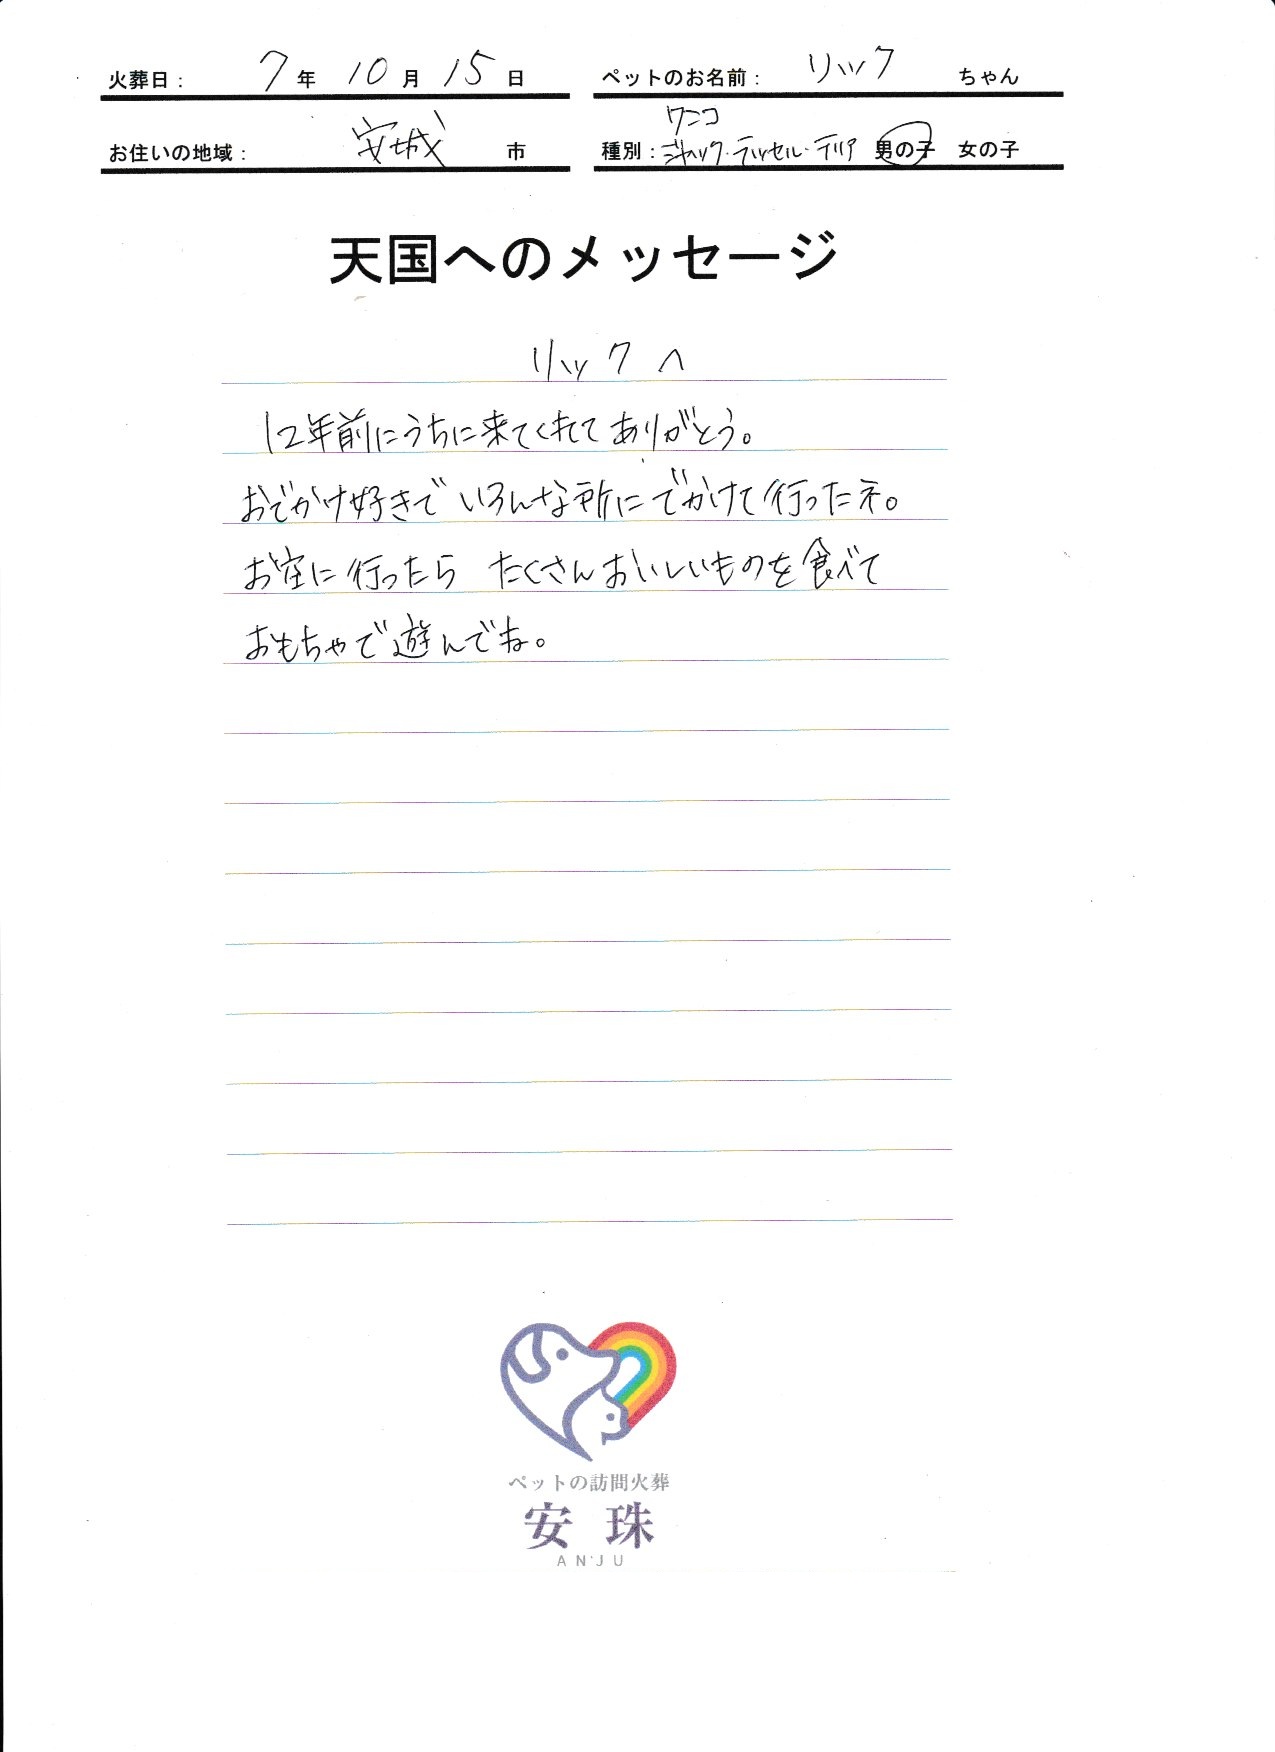 火葬日： 7年 10月 15日
ペットのお名前： リック ちゃん
お住いの地域： 安城 市
ワンコ
種別：ジャック・ラッセル・テリア 男の子 女の子
天国へのメッセージ
リックへ
12年前にうちに来てくれてありがとう。
おでかけ好きでいろんな所にでかけて行ったネ。
お空に行ったら たくさんおいしいものを食べて
おもちゃで遊んでね。
ペットの訪問火葬
安珠
ANJU